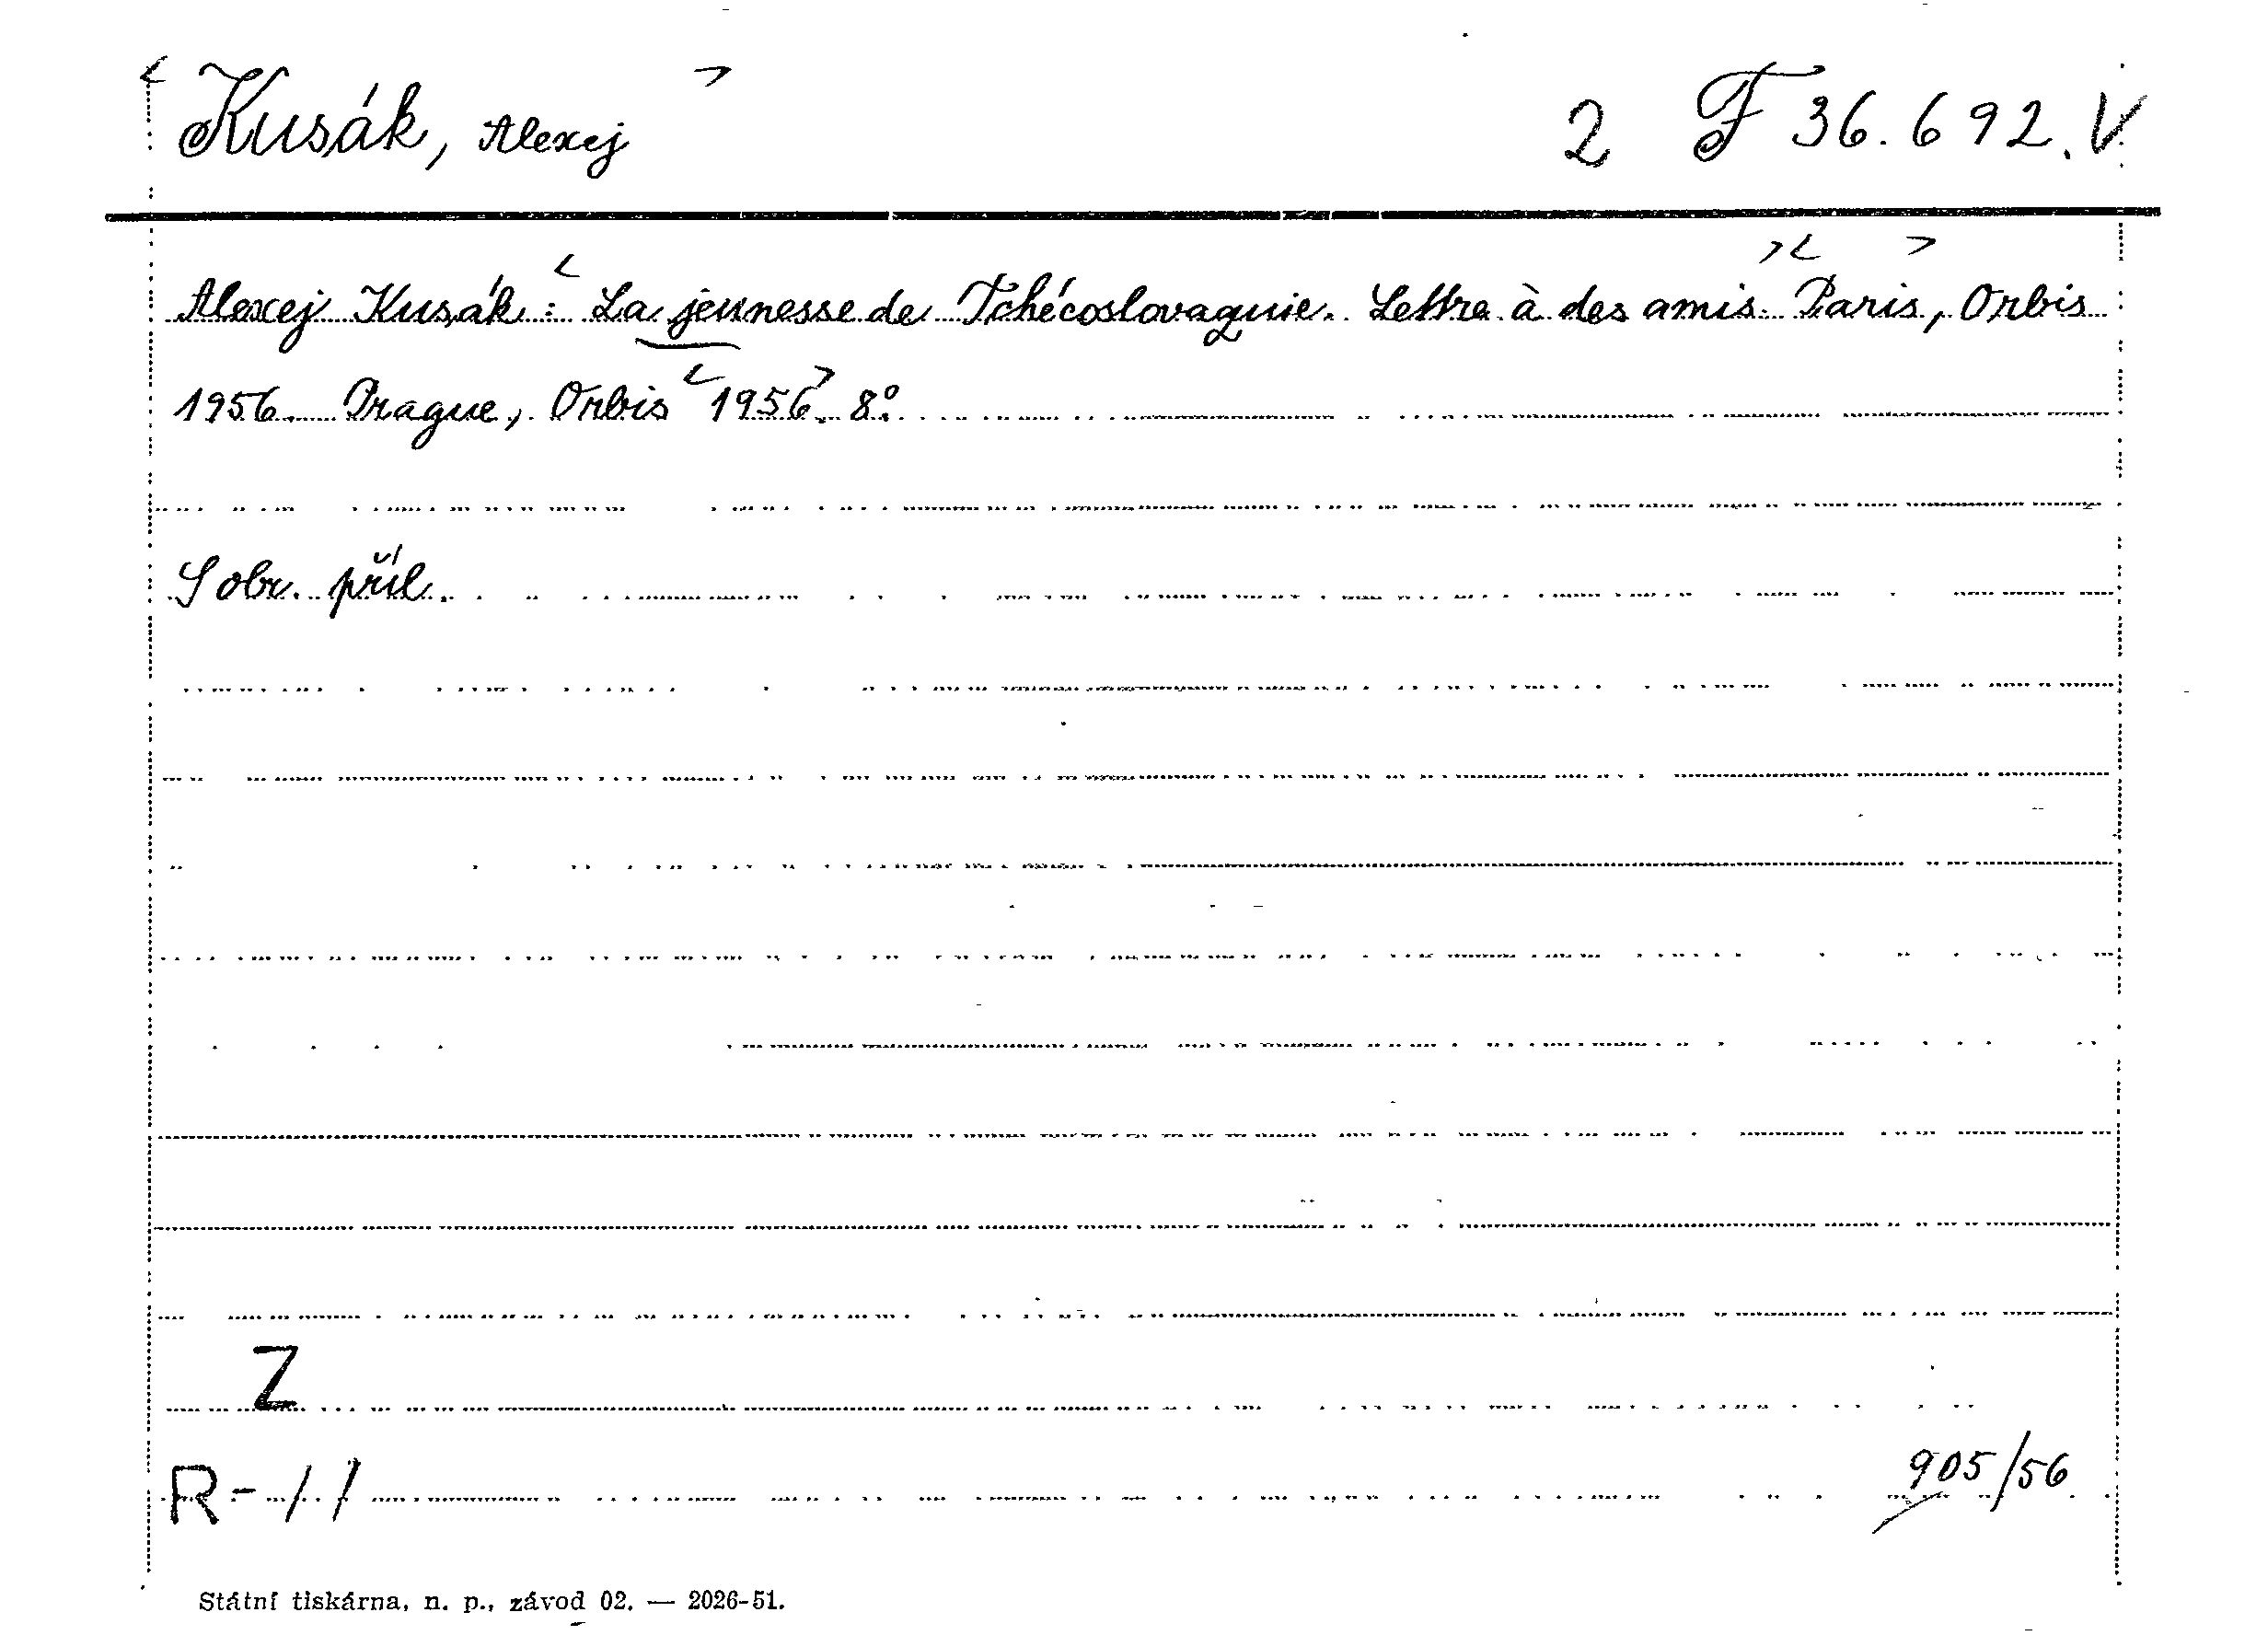 < Kusák, Alexej > 2 F 36.692.V
Alexej Kusák: < La jeunesse de Tchécoslovaquie. Lettre à des amis. >< Paris, > Orbis
1956. Prague, Orbis < 1956. > 8°.
S obr. příl.
Z
R-11
905/56
Státní tiskárna, n. p., závod 02. — 2026-51.